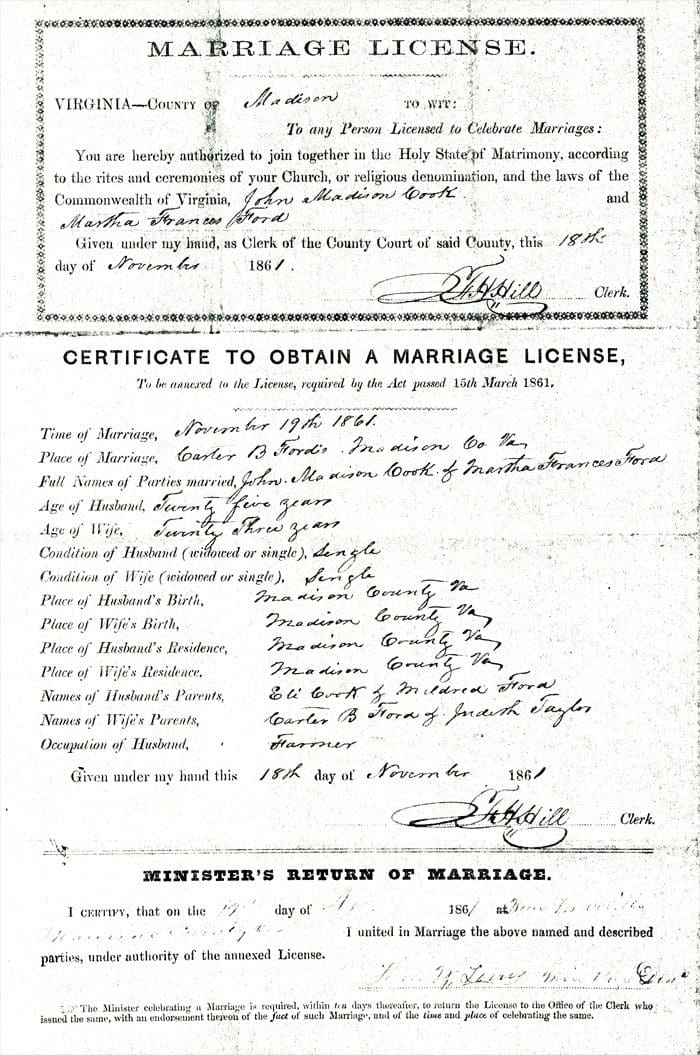 MARRIAGE LICENSE.
VIRGINIA—County of Madison to wit:
To any Person Licensed to Celebrate Marriages:
You are hereby authorized to join together in the Holy State of Matrimony, according
to the rites and ceremonies of your Church, or religious denomination, and the laws of the
Commonwealth of Virginia, John Madison Cook and
Martha Frances Ford
Given under my hand, as Clerk of the County Court of said County, this 18th
day of November 1861.
F H Hill Clerk.
CERTIFICATE TO OBTAIN A MARRIAGE LICENSE,
To be annexed to the License, required by the Act passed 15th March 1861.
Time of Marriage, November 19th 1861.
Place of Marriage, Carter B Ford's. Madison Co Va
Full Names of Parties married, John Madison Cook & Martha Frances Ford
Age of Husband, Twenty five years
Age of Wife, Twenty Three years
Condition of Husband (widowed or single), Single
Condition of Wife (widowed or single), Single
Place of Husband's Birth, Madison County Va
Place of Wife's Birth, Madison County Va
Place of Husband's Residence, Madison County Va
Place of Wife's Residence, Madison County Va
Names of Husband's Parents, Eli Cook & Mildred Ford
Names of Wife's Parents, Carter B Ford & Judith Taylor
Occupation of Husband, Farmer
Given under my hand this 18th day of November 1861
F H Hill Clerk.
MINISTER'S RETURN OF MARRIAGE.
I certify, that on the 19th day of 1861 at
I united in Marriage the above named and described
parties, under authority of the annexed License.
The Minister celebrating a Marriage is required, within ten days thereafter, to return the License to the Office of the Clerk who
issued the same, with an endorsement thereon of the fact of such Marriage, and of the time and place of celebrating the same.